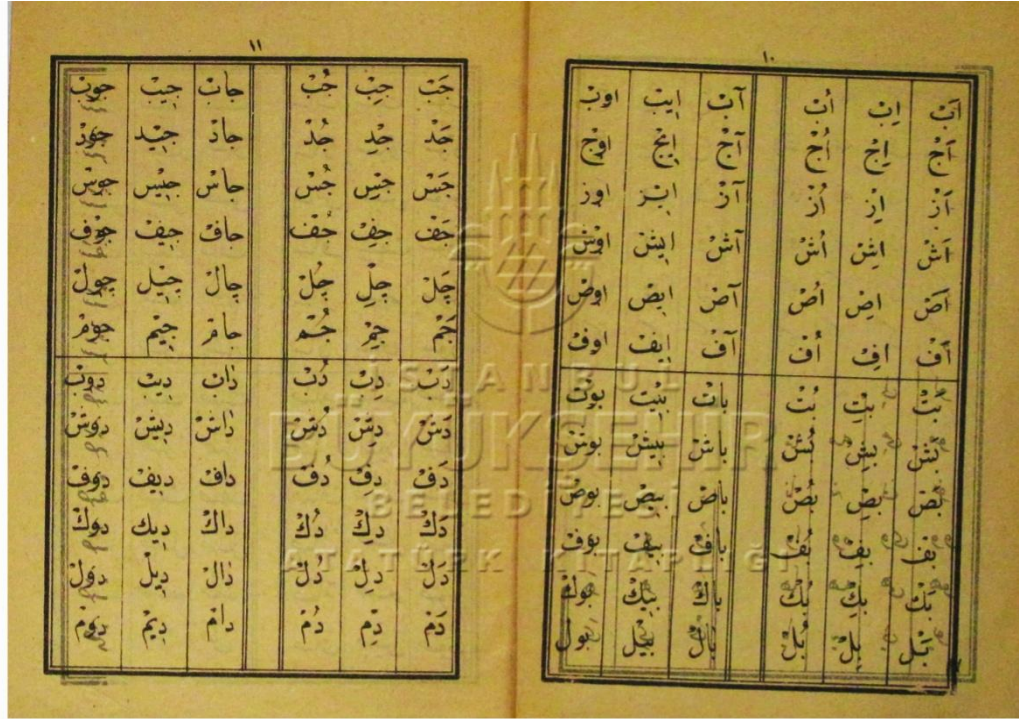 ١٠
اَبْ اِبْ اُبْ آبْ اِيبْ اوبْ
اَجْ اِجْ اُجْ آجْ اِيجْ اوجْ
اَزْ اِزْ اُزْ آزْ اِيزْ اوزْ
اَشْ اِشْ اُشْ آشْ اِيشْ اوشْ
اَضْ اِضْ اُضْ آضْ اِيضْ اوضْ
اَفْ اِفْ اُفْ آفْ اِيفْ اوفْ
بَتْ بِتْ بُتْ باتْ بِيتْ بوتْ
بَشْ بِشْ بُشْ باشْ بِيشْ بوشْ
بَضْ بِضْ بُضْ باضْ بِيضْ بوضْ
بَفْ بِفْ بُفْ بافْ بِيفْ بوفْ
بَكْ بِكْ بُكْ باكْ بِيكْ بوكْ
بَلْ بِلْ بُلْ بالْ بِيلْ بولْ
١١
جَبْ جِبْ جُبْ جابْ جِيبْ جوبْ
جَدْ جِدْ جُدْ جادْ جِيدْ جودْ
جَسْ جِسْ جُسْ جاسْ جِيسْ جوسْ
جَفْ جِفْ جُفْ جافْ جِيفْ جوفْ
چَلْ چِلْ چُلْ چالْ چِيلْ چولْ
جَمْ جِمْ جُمْ جامْ جِيمْ جومْ
دَبْ دِبْ دُبْ دابْ دِيبْ دوبْ
دَشْ دِشْ دُشْ داشْ دِيشْ دوشْ
دَفْ دِفْ دُفْ دافْ دِيفْ دوفْ
دَكْ دِكْ دُكْ داكْ دِيكْ دوكْ
دَلْ دِلْ دُلْ دالْ دِيلْ دولْ
دَمْ دِمْ دُمْ دامْ دِيمْ دومْ
İSTANBUL
BÜYÜKŞEHİR
BELEDİYESİ
ATATÜRK KİTAPLIĞI